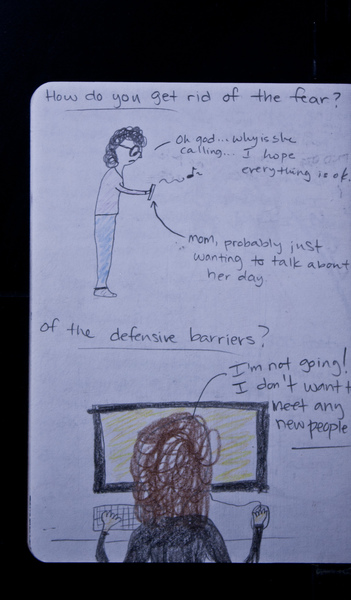 How do you get rid of the fear?
Oh god... why is she
calling... I hope
everything is ok.
mom, probably just
wanting to talk about
her day
of the defensive barriers?
I'm not going!
I don't want t
meet any
new people